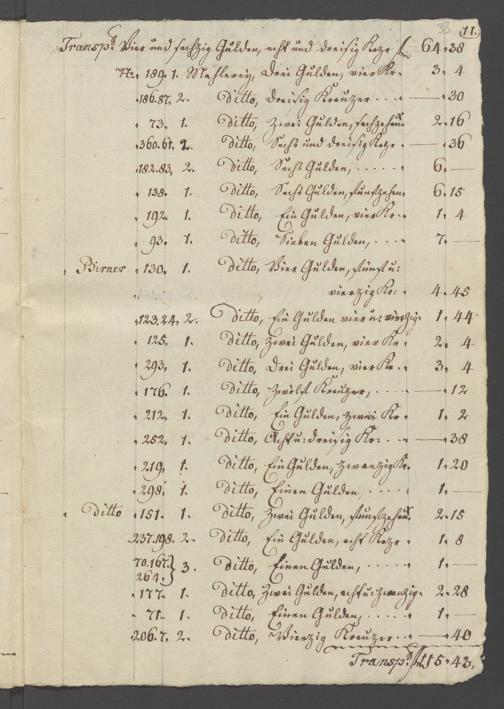 38 11.
Transp. Vier und sechzig Gulden, acht und dreisig Kreze f 64 " 38
No. 189. 1. Mahlerey, Drei Gulden, vier Kr. " 3 " 4
" 186.87. 2. Ditto, Dreisig Kreutzer . . . " — " 30
" 73. 1. Ditto, Zwei Gulden, sechzehen " 2 " 16
" 360.61. 2. Ditto, Sechs und dreisig Kreze " — " 36
" 182.83. 2. Ditto, Sechs Gulden, . . . . " 6 " —
" 138. 1. Ditto, Sechs Gulden, fünfzehen " 6 " 15
" 192. 1. Ditto, Ein Gulden, vier Kr. " 1 " 4
" 93. 1. Ditto, Sieben Gulden, . . . . " 7 " —
" Birner " 130. 1. Ditto, Vier Gulden, fünf u:
vierzig Kr: " 4 " 45
" 123.24. 2. Ditto, Ein Gulden vier u: vierzig " 1 " 44
" 125. 1. Ditto, Zwei Gulden, vier Kr " 2 " 4
" 293. 1. Ditto, Drei Gulden, vier Kr. . " 3 " 4
" 176. 1. Ditto, Zwölf Kreutzer, . . . . " — " 12
" 212. 1. Ditto, Ein Gulden, zwei Kr " 1 " 2
" 252. 1. Ditto, Acht u: dreisig Kr: . . . " — " 38
" 219. 1. Ditto, Ein Gulden, zwanzig Kr. " 1 " 20
" 298. 1. Ditto, Einen Gulden, . . . . " 1 " —
" Ditto " 151. 1. Ditto, Zwei Gulden, fünfzehen " 2 " 15
" 237.198. 2. Ditto, Ein Gulden, acht Kreze " 1 " 8
70.167.
264. } 3. Ditto, Einen Gulden, . . . . " 1 " —
" 177. 1. Ditto, Zwei Gulden, acht u: zwanzig " 2 " 28
" 71. 1. Ditto, Einen Gulden, . . . . " 1 " —
" 206.7. 2. Ditto, Vierzig Kreutzer . . " — " 40
Transp. f 115 " 43.